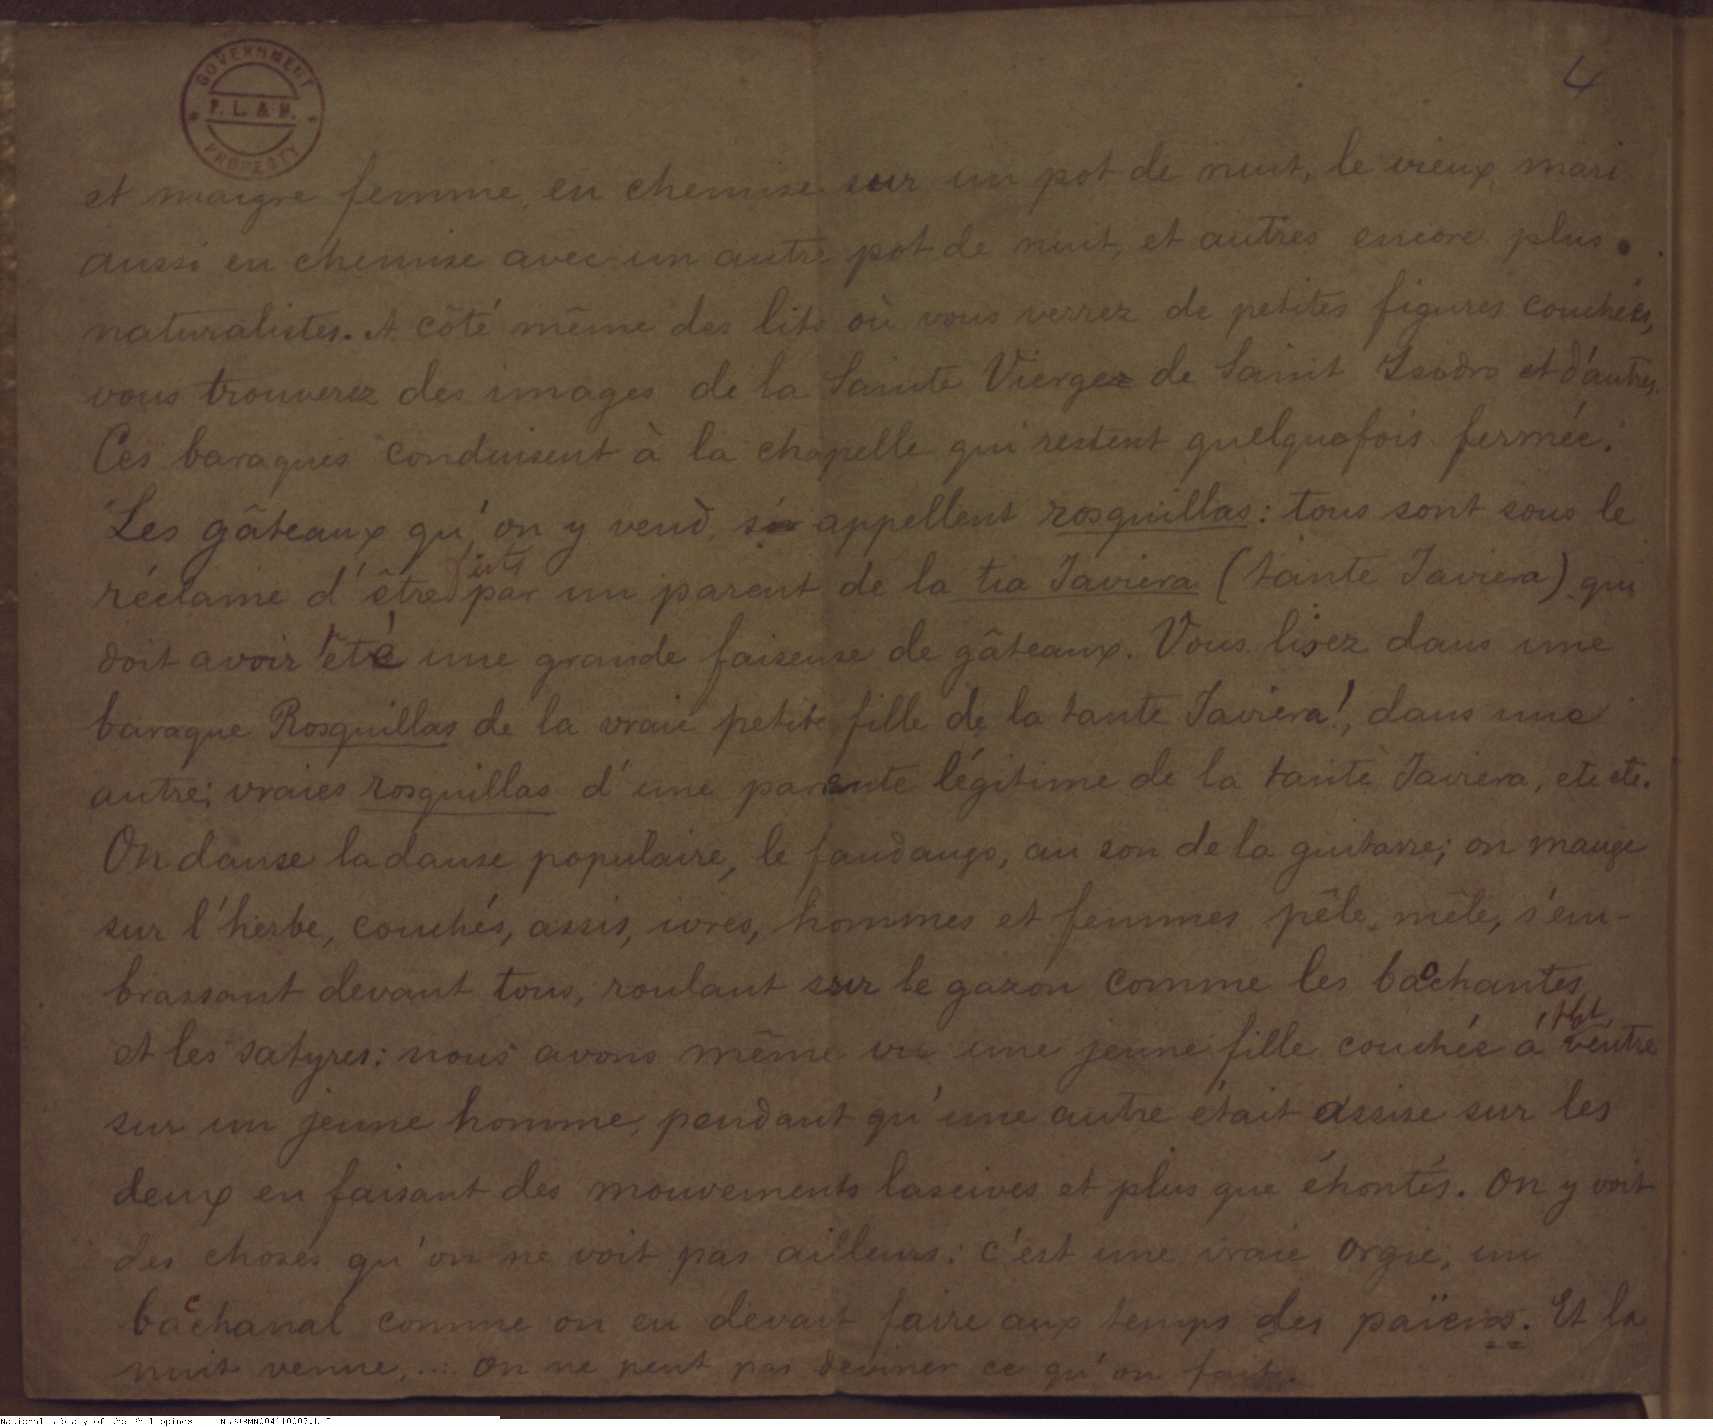 GOVERNMENT
P. L. & M.
PROPERTY
4
et maigre femme, en chemise sur un pot de nuit, le vieux mari
aussi en chemise avec un autre pot de nuit, et autres encore plus
naturalistes. A côté même des lits où vous verrez de petites figures couchées,
vous trouverez des images de la Sainte Vierge de Saint Isidro et d'autres.
Ces baraques conduisent à la chapelle qui restent quelquefois fermée.
Les gâteaux qu'on y vend s'appellent rosquillas: tous sont sous le
faits
réclame d'être par un parent de la tia Javiera (tante Javiera) qui
doit avoir été une grande faiseuse de gâteaux. Vous lisez dans une
baraque Rosquillas de la vraie petite fille de la tante Javiera!, dans une
autre; vraies rosquillas d'une parente légitime de la tante Javiera, etc etc.
On danse la danse populaire, le fandango, au son de la guitarre; on mange
sur l'herbe, couchés, assis, ivres, hommes et femmes pêle-mêle, s'em-
brassant devant tous, roulant sur le gazon comme les bacchantes
et les satyres: nous avons même vu une jeune fille couchée à ventre
sur un jeune homme, pendant qu'une autre était assise sur les
deux en faisant des mouvements lascives et plus que éhontés. On y voit
des choses qu'on ne voit pas ailleurs: c'est une vraie orgie, un
bacchanal comme on en devait faire aux temps des païens. Et la
nuit venue,... on ne peut pas deviner ce qu'on fait.
National Library of the Philippines